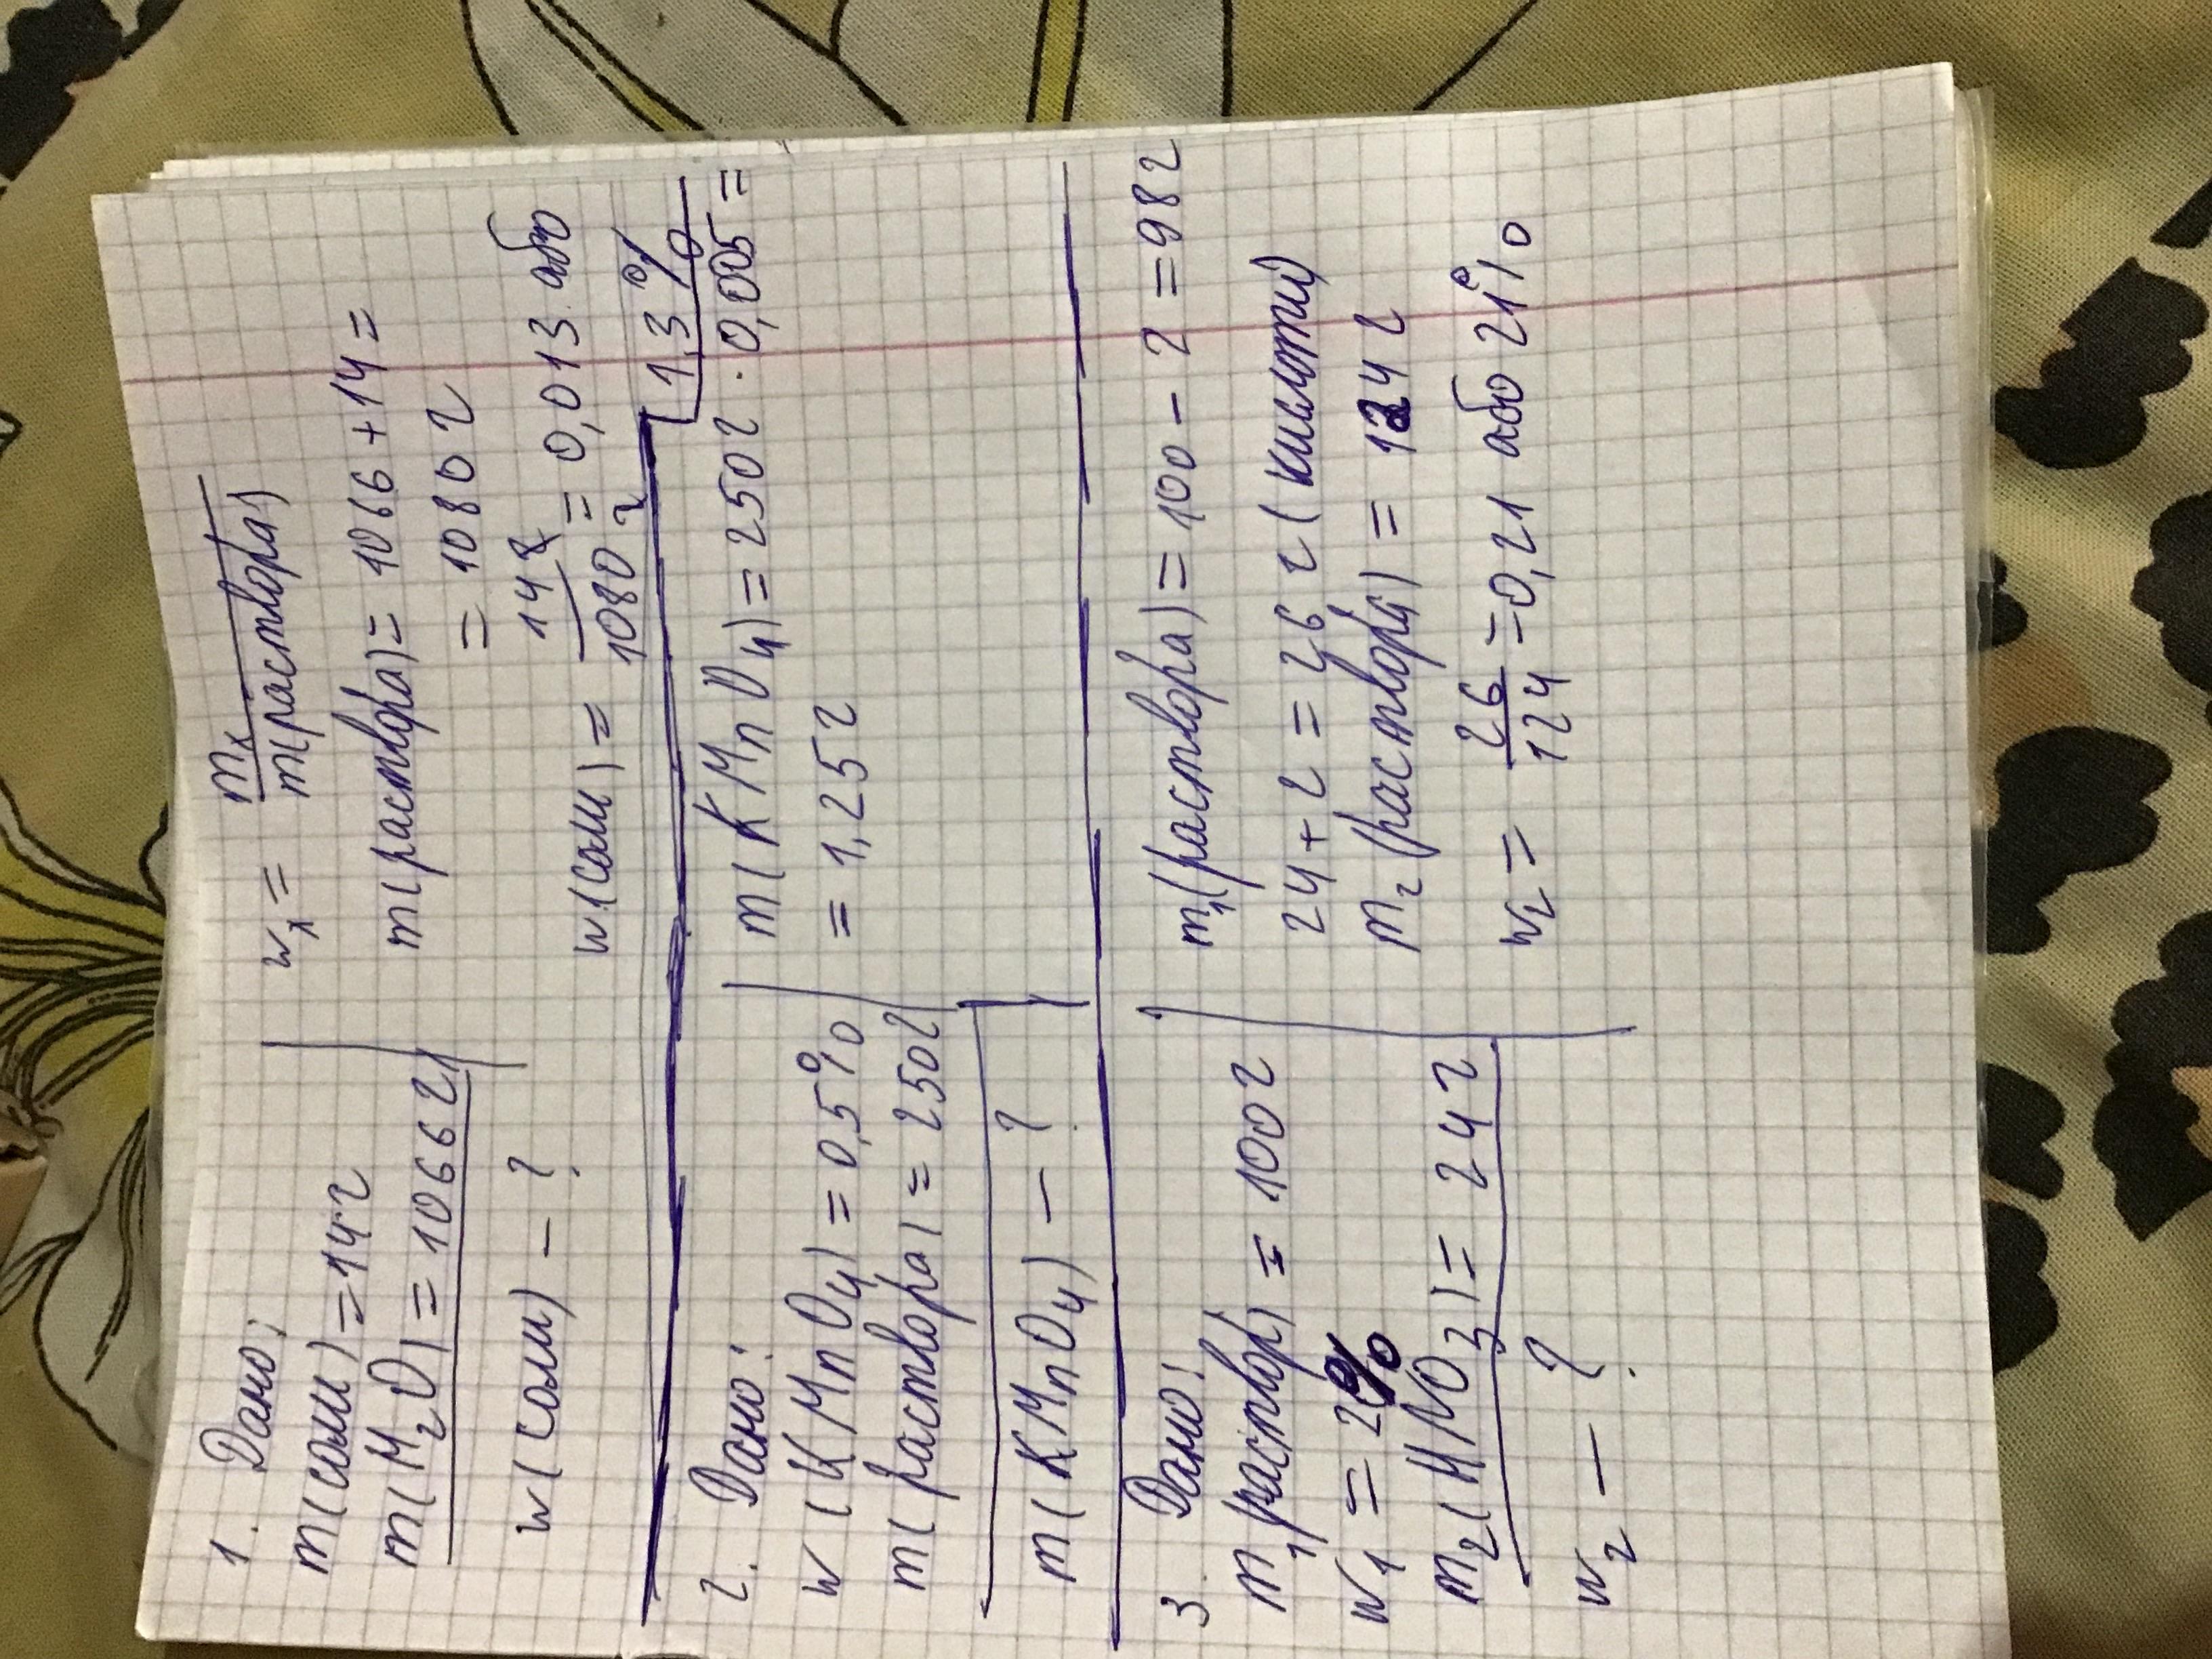 1. Дано:
m(соли)=14г
m(H2O)=1066г
w(соли) – ?
wx = mx / m(раствора)
m(раствора)=1066+14=
= 1080 г
w(соли) = 14г / 1080г = 0,013 або
1,3%
2. Дано:
w(KMnO4)=0,5%
m(раствора)=250г
m(KMnO4) – ?
m(KMnO4)=250г · 0,005=
= 1,25г
3. Дано:
m1(раствор) = 100г
w1 = 2%
m2(HNO3)= 24г
w2 – ?
m1(раствора)=100 – 2 =98г
24+2 = 26 г (кислоти)
m2(раствора) = 124 г
w2 = 26 / 124 =0,21 або 21%